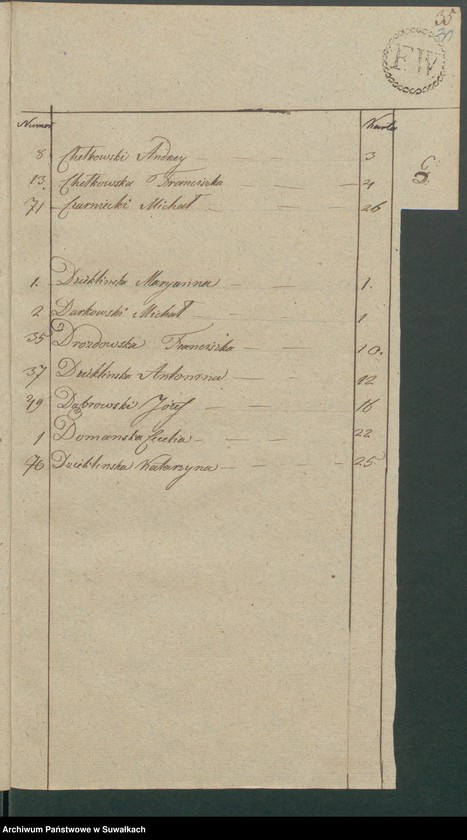 35
30
FW
Numer Karta
8 Chełkowski Andrzey 3
13. Chełkowska Franciszka 4
C
71 Czarniecki Michał 26
D
1. Dzieklinska Maryanna 1.
2 Darkowski Michał 1
35 Drozdowska Franciszka 10.
37 Dzieklinska Antonina 12
49 Dąbrowski Józef 16
1 Domanska Cecilia 22
76 Dzieklinska Katarzyna 25
Archiwum Państwowe w Suwałkach